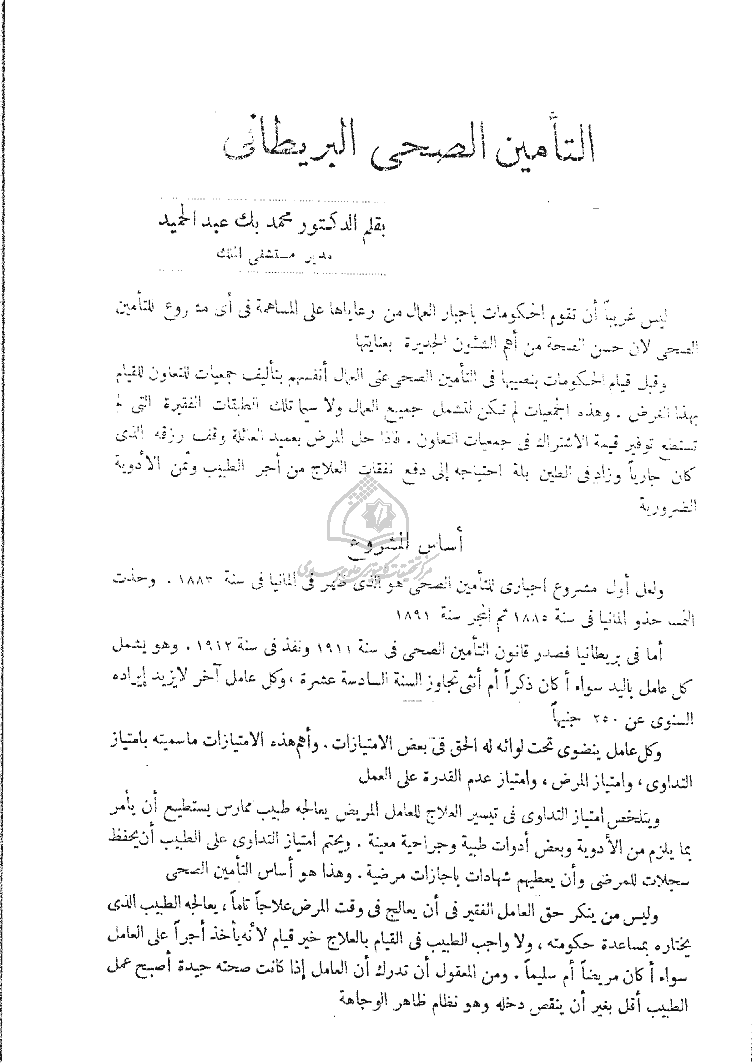 التأمين الصحى البريطانى
بقلم الدكتور محمد بك عبد الحميد
مدير مستشفى الملك
ليس غريباً أن تقوم الحكومات باجبار العمال من رعاياها على المساهمة فى أى مشروع للتأمين
الصحى لان حسن الصحة من أهم الشئون الجديرة بعنايتها
وقبل قيام الحكومات بنصيبها فى التأمين الصحى عنى العمال أنفسهم بتأليف جمعيات للتعاون للقيام
بهذا الغرض . وهذه الجمعيات لم تكن لتشمل جميع العمال ولا سيما تلك الطبقات الفقيرة التى لم
تستطع توفير قيمة الاشتراك فى جمعيات التعاون . فاذا حل المرض بعميد العائلة وقف رزقه الذى
كان جارياً وزاد فى الطين بلة احتياجه إلى دفع نفقات العلاج من أجر الطبيب وثمن الأدوية
الضرورية
أساس المشروع
ولعل أول مشروع اجبارى للتأمين الصحى هو الذى ظهر فى المانيا فى سنة ١٨٨٣ . وحذت
النمسا حذو المانيا فى سنة ١٨٨٥ ثم المجر سنة ١٨٩١
أما فى بريطانيا فصدر قانون التأمين الصحى فى سنة ١٩١١ ونفذ فى سنة ١٩١٢ . وهو يشمل
كل عامل باليد سواء أكان ذكراً أم أنثى تجاوز السنة السادسة عشرة ، وكل عامل آخر لايزيد إيراده
السنوى عن ٢٥٠ جنيهاً
وكل عامل ينضوى تحت لوائه له الحق فى بعض الامتيازات . وأهم هذه الامتيازات ماسميته بامتياز
التداوى ، وامتياز المرض ، وامتياز عدم القدرة على العمل
ويتلخص امتياز التداوى فى تيسير العلاج للعامل المريض يعالجه طبيب ممارس يستطيع أن يأمر
بما يلزم من الأدوية وبعض أدوات طبية وجراحية معينة . ويحتم امتياز التداوى على الطبيب أن يحفظ
سجلات للمرضى وأن يعطيهم شهادات باجازات مرضية . وهذا هو أساس التأمين الصحى
وليس من ينكر حق العامل الفقير فى أن يعالج فى وقت المرض علاجاً تاماً ، يعالجه الطبيب الذى
يختاره بمساعدة حكومته ، ولا واجب الطبيب فى القيام بالعلاج خير قيام لأنه يأخذ أجراً على العامل
سواء أكان مريضاً أم سليماً . ومن المعقول أن تدرك أن العامل إذا كانت صحته جيدة أصبح عمل
الطبيب أقل بغير أن ينقص دخله وهو نظام ظاهر الوجاهة